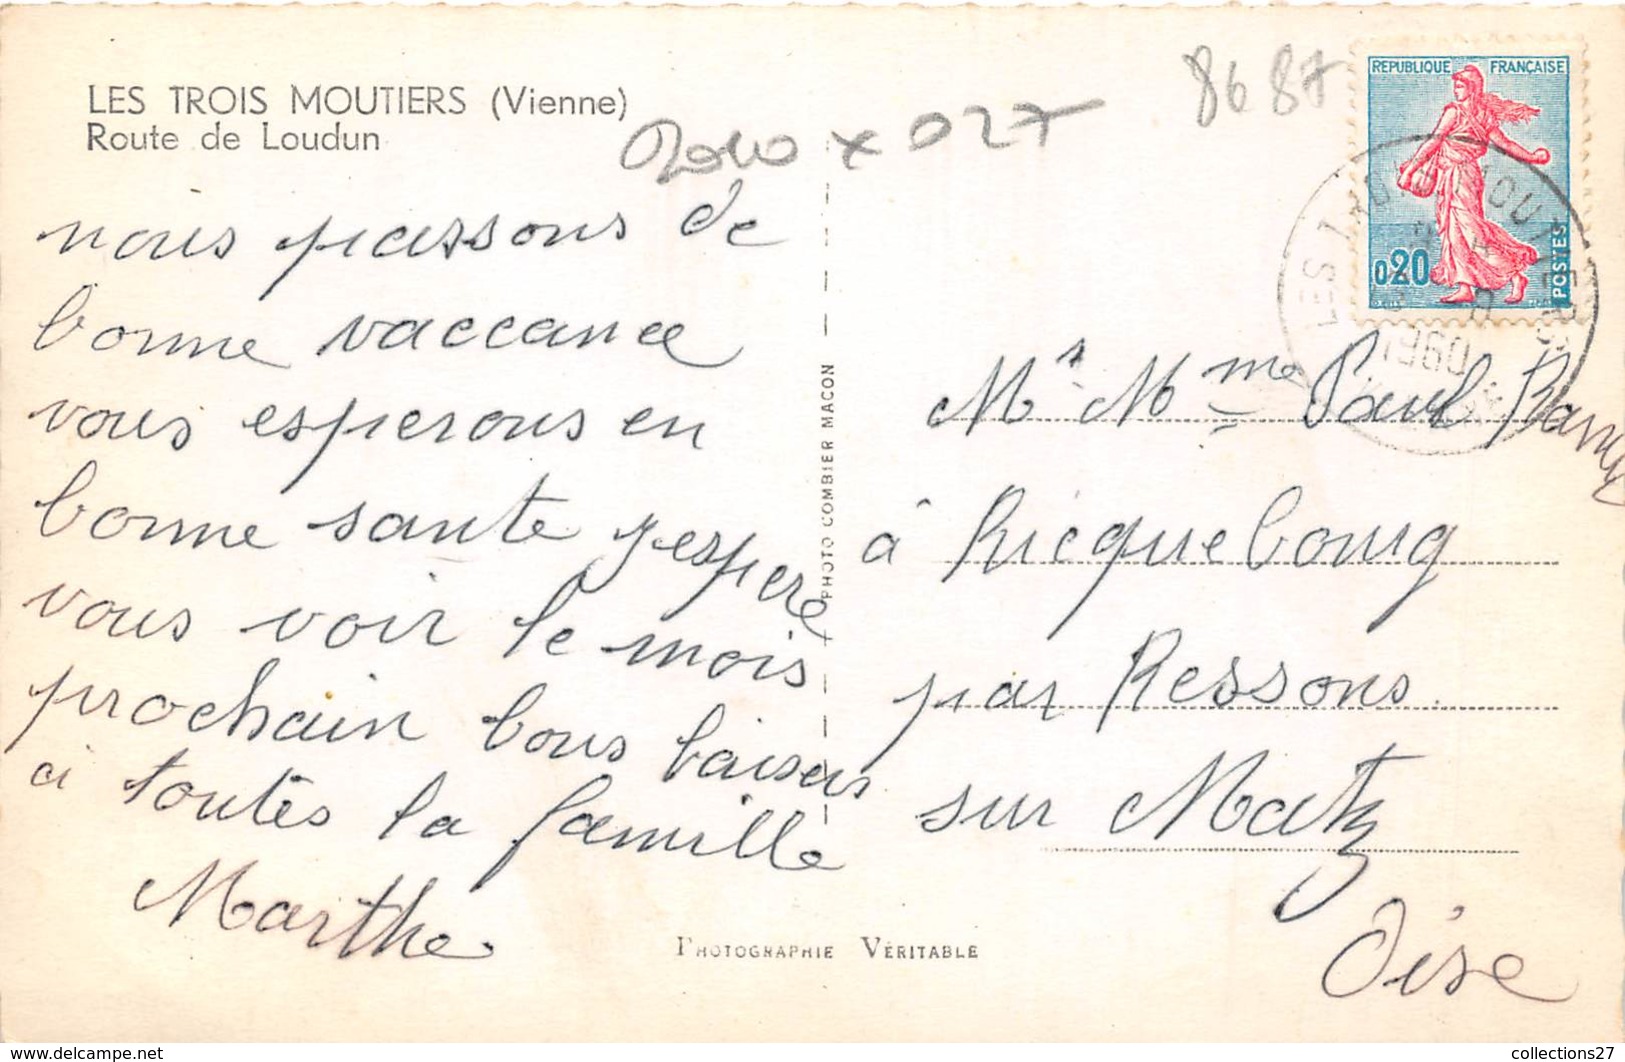 LES TROIS MOUTIERS (Vienne)
Route de Loudun
8687
x 027
REPUBLIQUE FRANÇAISE
0,20
POSTES
LES TROIS MOUTIERS
1960
nous passons de
bonne vaccance
vous esperons en
bonne sante j'espere
vous voir le mois
prochain bons baisers
a toutes la famille
Marthe
PHOTO COMBIER MACON
Mr Mme Paul
à Ricquebourg
par Ressons
sur Matz
Oise
PHOTOGRAPHIE VÉRITABLE
www.delcampe.net
collections27